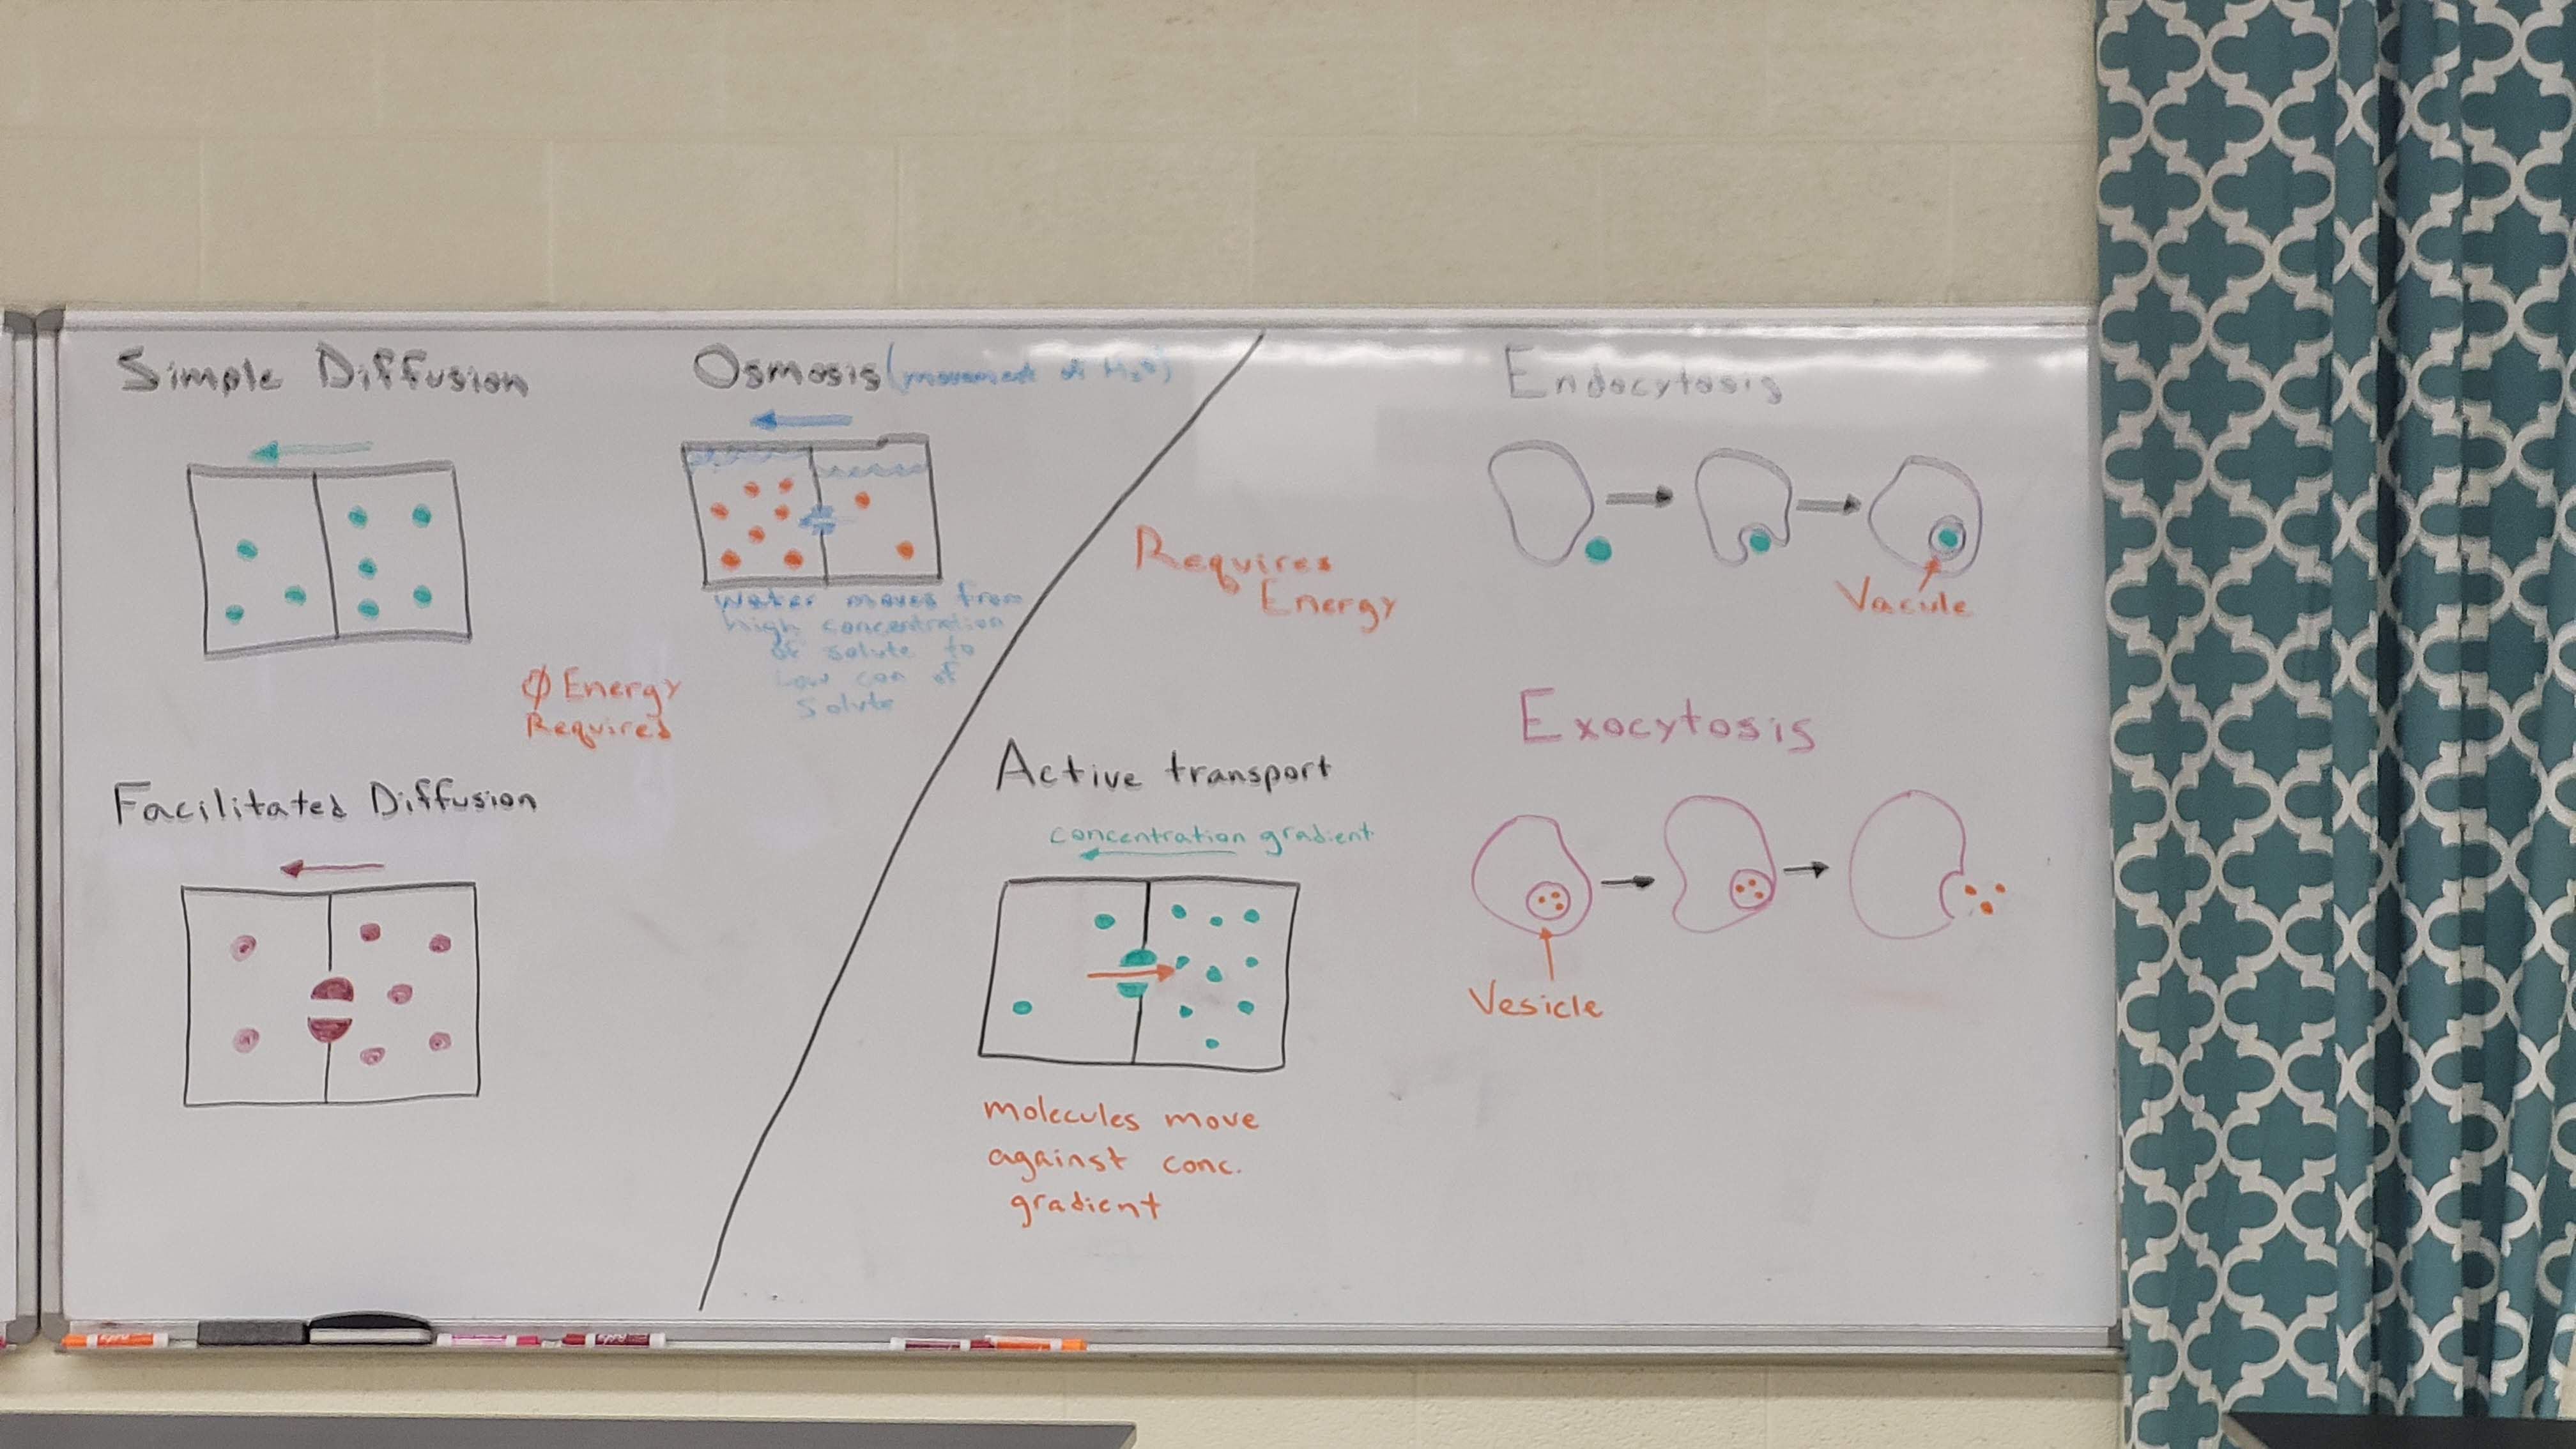 Simple Diffusion
Osmosis (movement of H₂O)
Water moves from
high concentration
of solute to
Low con of
Solute
Ø Energy
Required
Facilitated Diffusion
Requires
Energy
Active transport
concentration gradient
molecules move
against conc.
gradient
Endocytosis
Vacule
Exocytosis
Vesicle